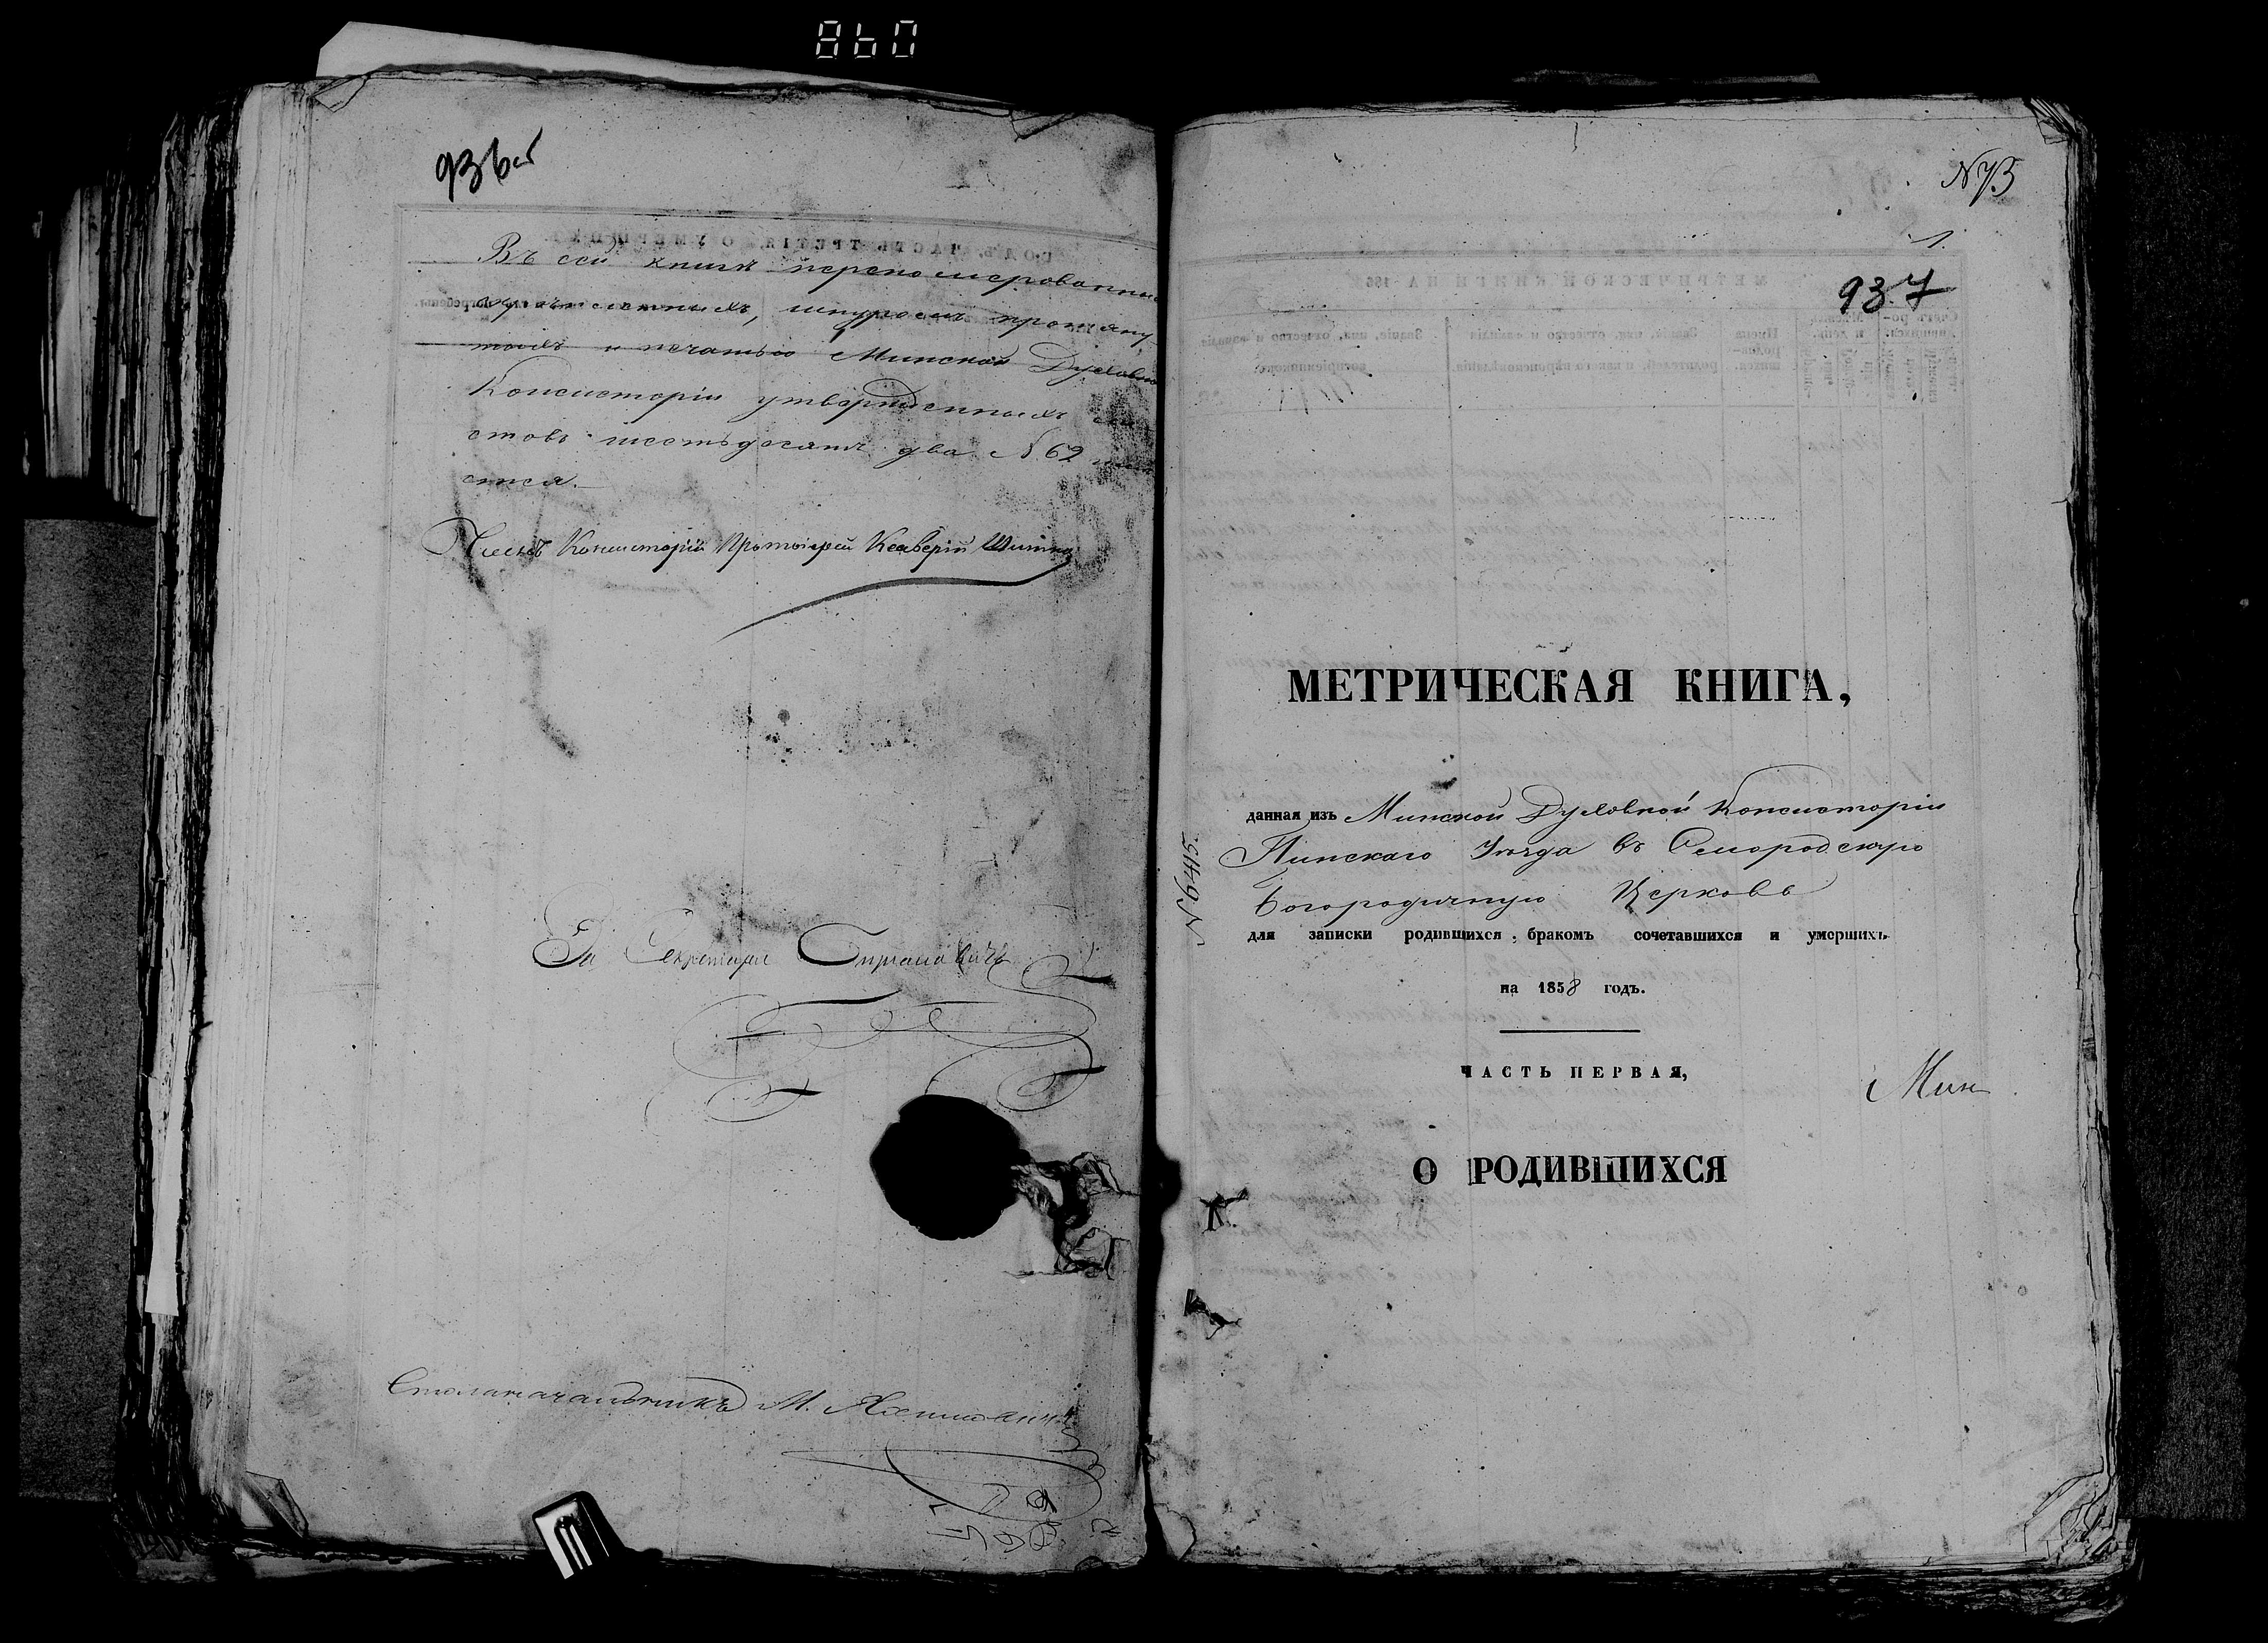 860
936об
Въ сей книгѣ перенумерованныхъ
шнуромъ протяну
тыхъ и печатью Минской Духовной
Консисторіи утвержденныхъ ли
стовъ шестьдесятъ два №62
ется.
Членъ Консисторіи Протоіерей Ксаверій
За Секретаря
Столоначальникъ М.
№73
1.
937
МЕТРИЧЕСКАЯ КНИГА,
данная изъ Минской Духовной Консисторіи
Пинскаго Уѣзда въ Смородскую
Богородичную Церковь
для записки родившихся, бракомъ сочетавшихся и умершихъ
на 1858 годъ.
ЧАСТЬ ПЕРВАЯ,
Мин
О РОДИВШИХСЯ